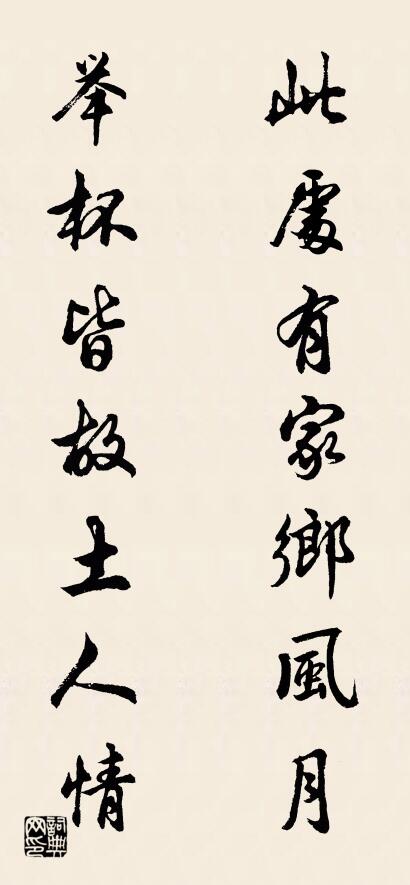 此處有家鄉風月
举杯皆故土人情
詞典网印